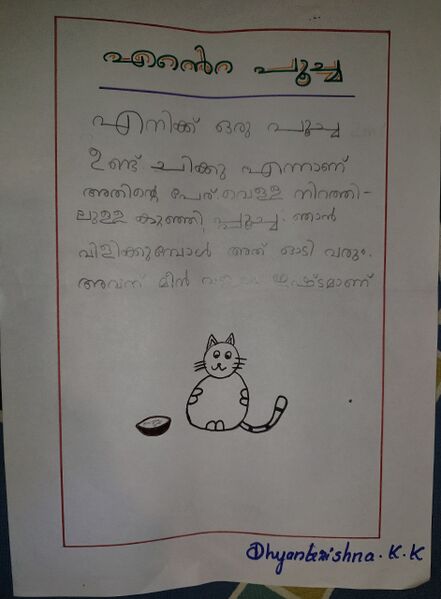 എൻ്റെ പൂച്ച
എനിക്ക് ഒരു പൂച്ച
ഉണ്ട് ചിക്കു എന്നാണ്
അതിന്റെ പേര്. വെള്ള നിറത്തി-
ലുള്ള കുഞ്ഞി പൂച്ച ഞാൻ
വിളിക്കുമ്പോൾ അത് ഓടി വരും.
അവന് മീൻ ഇഷ്ടമാണ്
Dhyankrishna.K.K